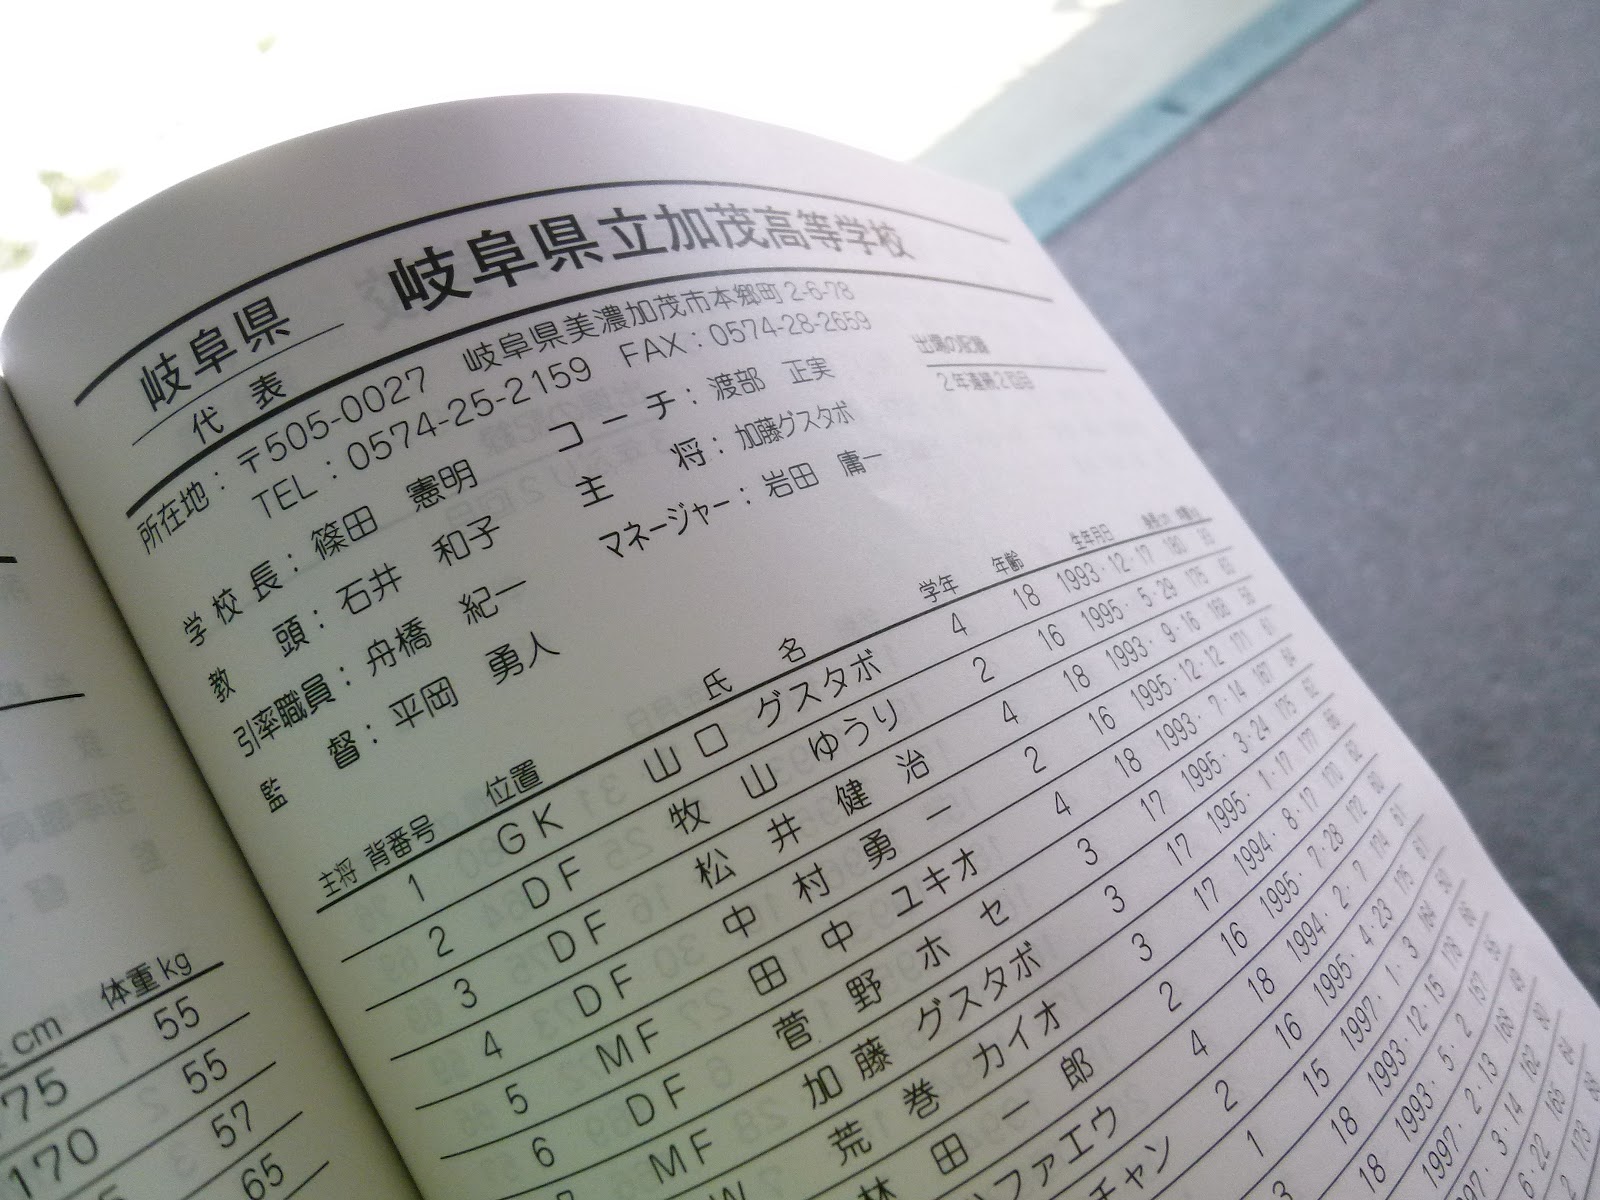 岐阜県 岐阜県立加茂高等学校
代 表
所在地：〒505-0027 岐阜県美濃加茂市本郷町2-6-78
TEL：0574-25-2159 FAX：0574-28-2659
学校長：篠田 憲明 コーチ：渡部 正実
教 頭：石井 和子 主 将：加藤グスタボ
引率職員：舟橋 紀一 マネージャー：岩田 庸一
監 督：平岡 勇人
出場の記録
2年連続2回目
主将 背番号 位置 氏 名 学年 年齢 生年月日 身長cm 体重kg
1 GK 山口 グスタボ 4 18 1993・12・17 180
2 DF 牧山 ゆうり 2 16 1995・5・29 175
3 DF 松井 健治 4 18 1993・9・16 168
4 DF 中村 勇一 2 16 1995・12・12 171
5 MF 田中 ユキオ 4 18 1993・7・14 167
6 DF 菅野 ホセ 3 17 1995・3・24 175
MF 加藤 グスタボ 3 17 1995・1・17 177
荒巻 カイオ 3 17 1994・8・17 170
林田 一郎 2 16 1995・7・28 172
ファエウ 4 18 1994・2・7 174
チャン 2 16 1995・4・23 176
1 15 1997・1・3 164
18 1993・12・15
18 1993・5・2 157
1997・2・13
3・14 162
6・22
cm 体重kg
75 55
170 55
57
65